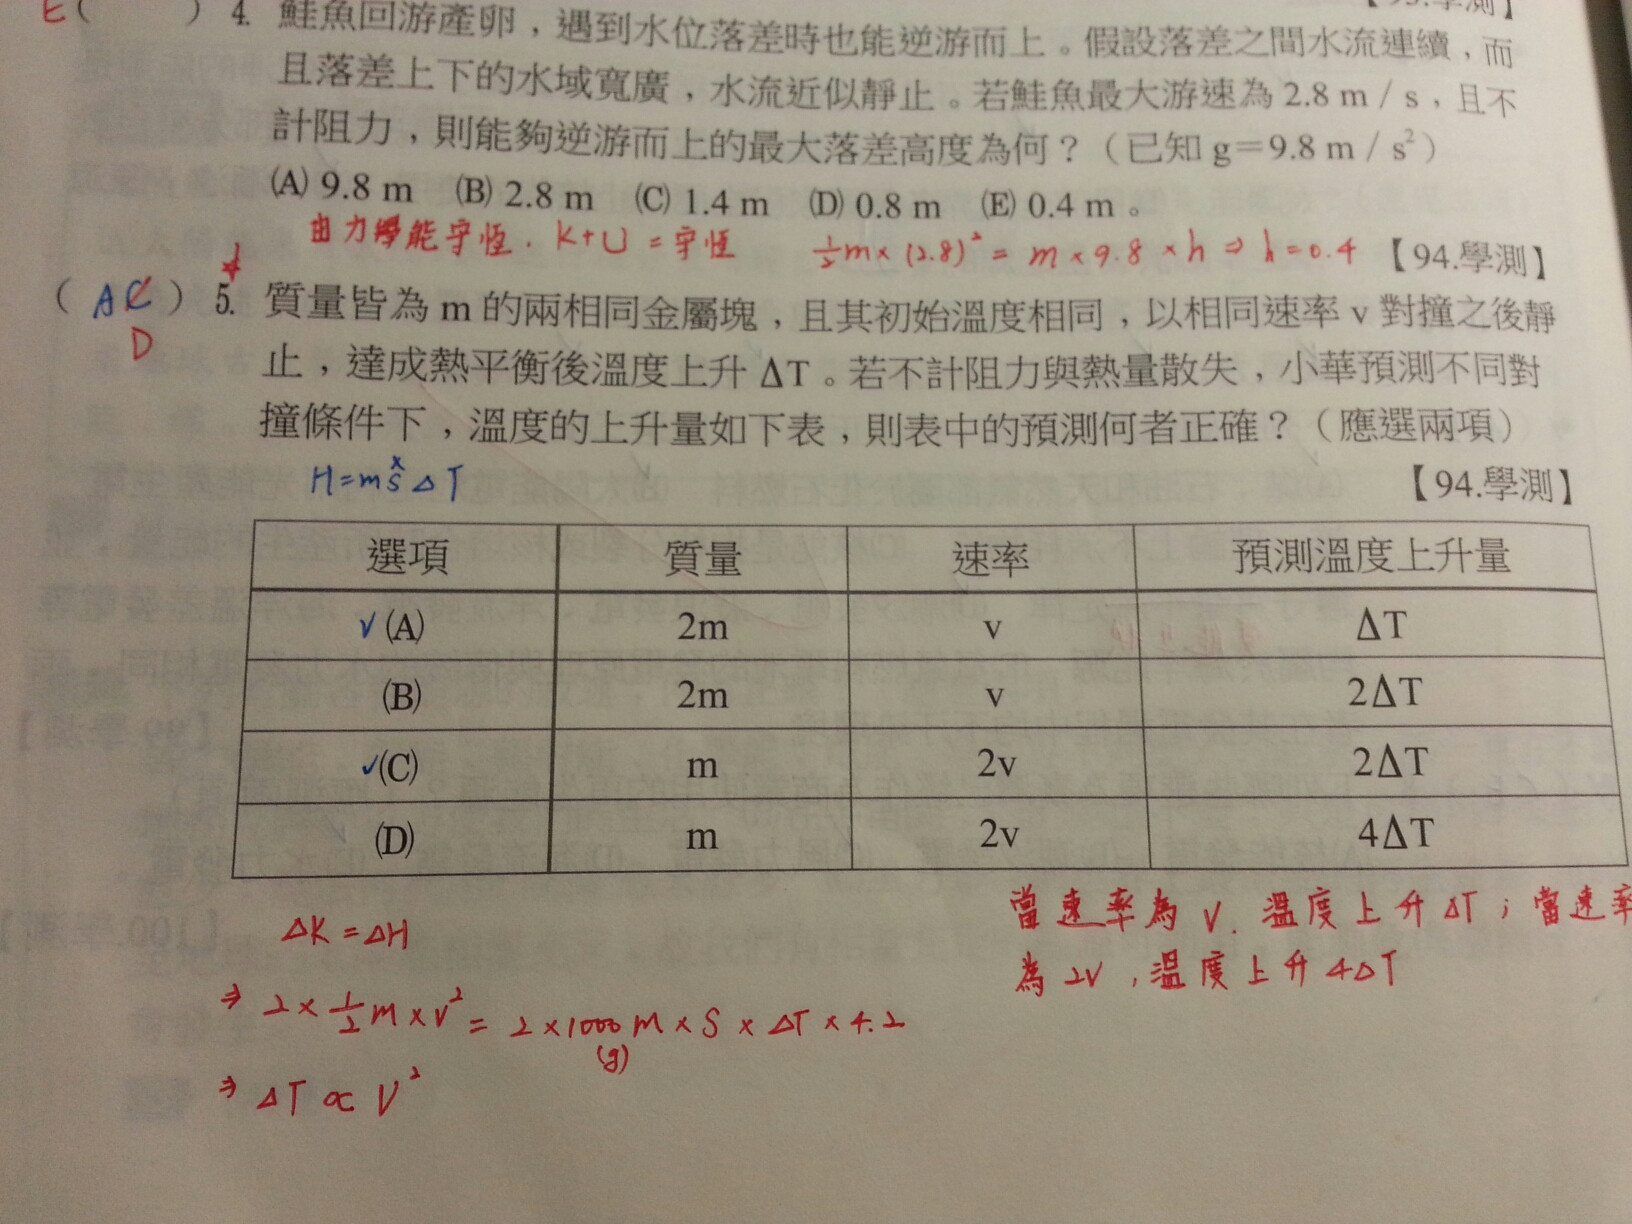 E( ) 4. 鮭魚回游產卵，遇到水位落差時也能逆游而上。假設落差之間水流連續，而
且落差上下的水域寬廣，水流近似靜止。若鮭魚最大游速為 2.8 m / s，且不
計阻力，則能夠逆游而上的最大落差高度為何？（已知 g＝9.8 m / s²）
(A) 9.8 m (B) 2.8 m (C) 1.4 m (D) 0.8 m (E) 0.4 m。
由力學能守恆. K+U = 守恆 ½m×(2.8)² = m×9.8×h ⇒ h=0.4 【94.學測】
（ AC ） 5. 質量皆為 m 的兩相同金屬塊，且其初始溫度相同，以相同速率 v 對撞之後靜
D
止，達成熱平衡後溫度上升 ΔT。若不計阻力與熱量散失，小華預測不同對
撞條件下，溫度的上升量如下表，則表中的預測何者正確？（應選兩項）
H=msΔT 【94.學測】
選項 質量 速率 預測溫度上升量
✓(A) 2m v ΔT
(B) 2m v 2ΔT
✓(C) m 2v 2ΔT
(D) m 2v 4ΔT
當速率為 V. 溫度上升 ΔT；當速率
為 2V，溫度上升 4ΔT
ΔK = ΔH
⇒ 2×½m×v² = 2×1000m×S×ΔT×4.2
(g)
⇒ ΔT ∝ V²